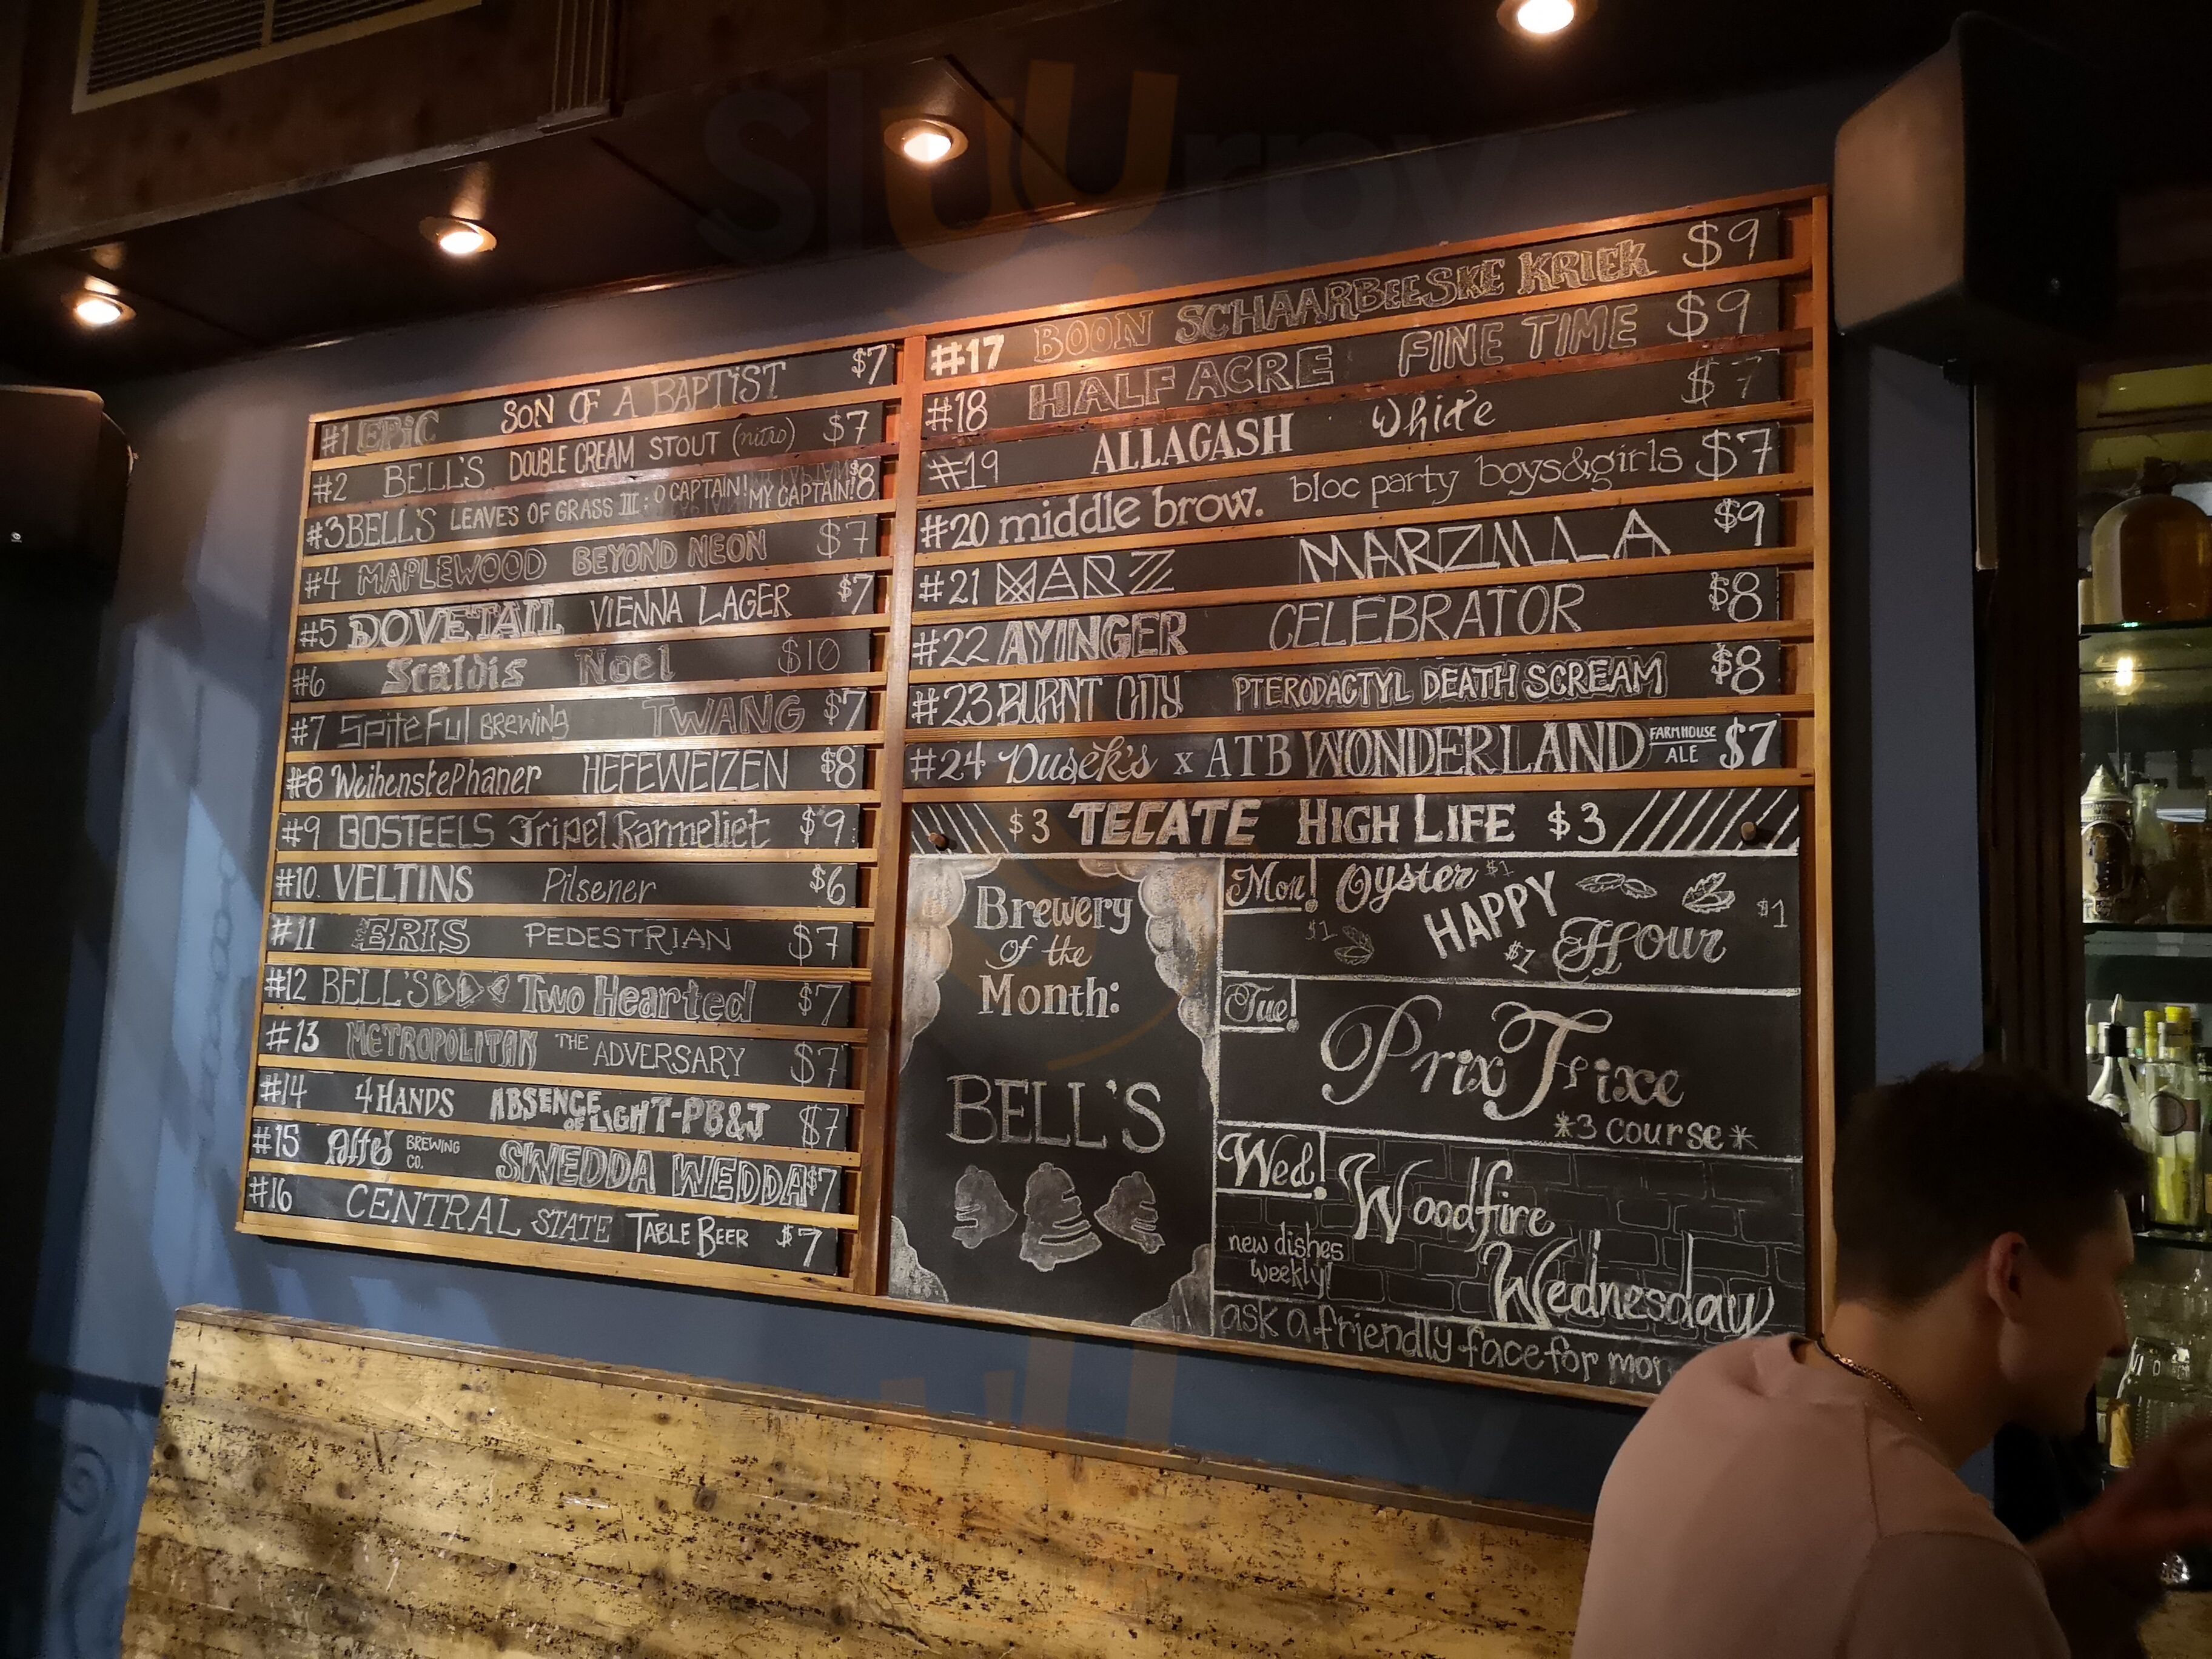 Sluurpy
#1 EPiC SON OF A BAPTiST $7
#2 BELL'S DOUBLE CREAM STOUT (nitro) $7
#3 BELL'S LEAVES OF GRASS III: O CAPTAIN! MY CAPTAIN! $8
#4 MAPLEWOOD BEYOND NEON $7
#5 DOVETAIL VIENNA LAGER $7
#6 Scaldis Noel $10
#7 SpiteFul BREWING TWANG $7
#8 WeihenstePhaner HEFEWEIZEN $8
#9 BOSTEELS Tripel Karmeliet $9
#10. VELTINS Pilsener $6
#11 ERIS PEDESTRIAN $7
#12 BELL'S Two Hearted $7
#13 METROPOLITAN THE ADVERSARY $7
#14 4 HANDS ABSENCE OF LIGHT-PB&J $7
#15 BREWING CO. SWEDDA WEDDA $7
#16 CENTRAL STATE TABLE BEER $7
#17 BOON SCHAARBEESKE KRIEK $9
#18 HALF ACRE FINE TIME $9
#19 ALLAGASH White $7
#20 middle brow. bloc party boys&girls $7
#21 MARZ MARZILLA $9
#22 AYINGER CELEBRATOR $8
#23 BURNT CITY PTERODACTYL DEATH SCREAM $8
#24 Dusek's x ATB WONDERLAND FARMHOUSE ALE $7
$3 TECATE HIGH LIFE $3
Brewery
of the
Month:
BELL'S
Mon! Oyster $1
$1 HAPPY $1
$1 Hour
Tue!
Prix Fixe
*3 course*
Wed! Woodfire
new dishes
weekly!
Wednesday
ask a friendly face for